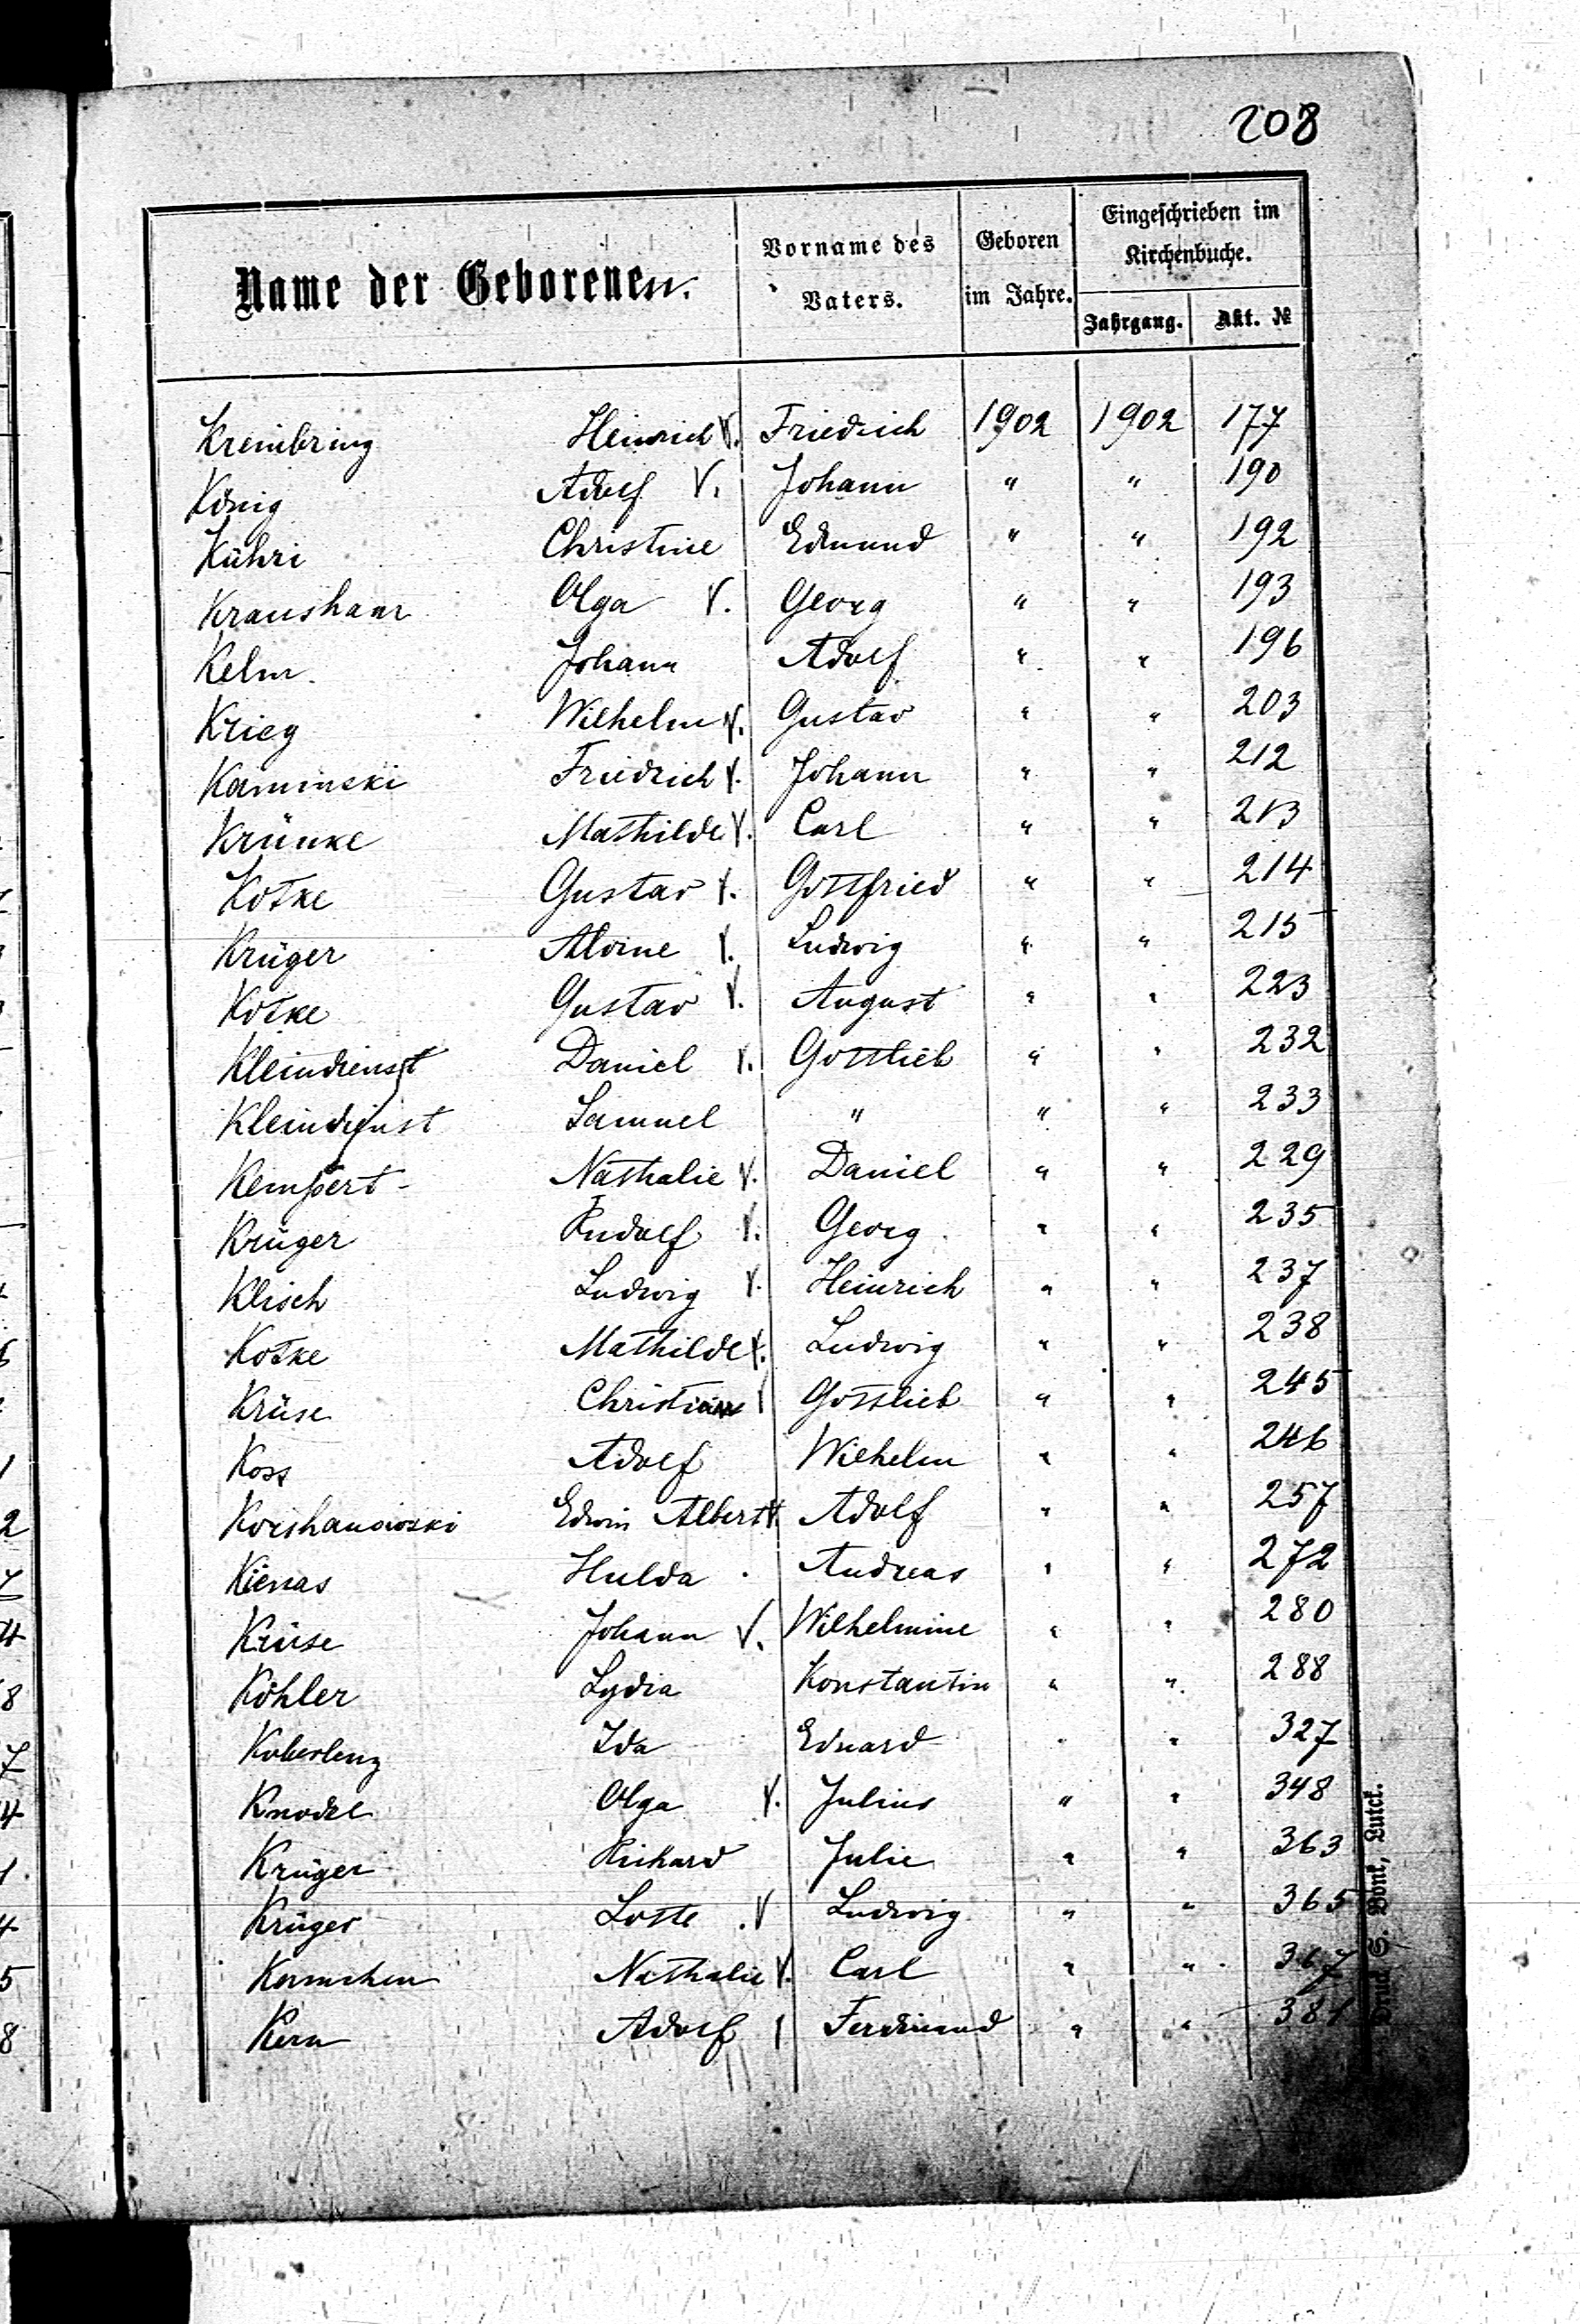 208
Name der Geborenen.
Vorname des Vaters.
Geboren im Jahre.
Eingeschrieben im Kirchenbuche.
Jahrgang. Akt. №
Kreinbring Heinrich V. Friedrich 1902 1902 177
König Adolf V. Johann " " 190
Kühri Christine Edmund " " 192
Kraushaar Olga V. Georg " " 193
Kelm. Johann Adolf " " 196
Krieg Wilhelm V. Gustav " " 203
Kaminski Friedrich V. Johann " " 212
Krünke Mathilde V. Carl " " 213
Kotke Gustav V. Gottfried " " 214
Krüger Alvine V. Ludwig " " 215
Kotke Gustav V. August " " 223
Kleindienst Daniel V. Gottlieb " " 232
Kleindienst Samuel " " " 233
Kempert Nathalie V. Daniel " " 229
Krüger Rudolf V. Georg " " 235
Klisch Ludwig V. Heinrich " " 237
Kotke Mathilde V. Ludwig " " 238
Krüse Christian V Gottlieb " " 245
Koss Adolf Wilhelm " " 246
Edwin Albert V. Adolf " " 257
Kienas Hulda Andreas " " 272
Krüse Johann V. Wilhelmine " " 280
Köhler Lydia Konstantin " " 288
Koberlenz Ida Eduard " " 327
Knodel Olga V. Julius " " 348
Krüger Richard Julie " " 363
Krüger Lotte V Ludwig " " 365
Nathalie V. Carl " " 367
Kern Adolf Ferdinand " " 381
Druck S. Bonk, Lutck.